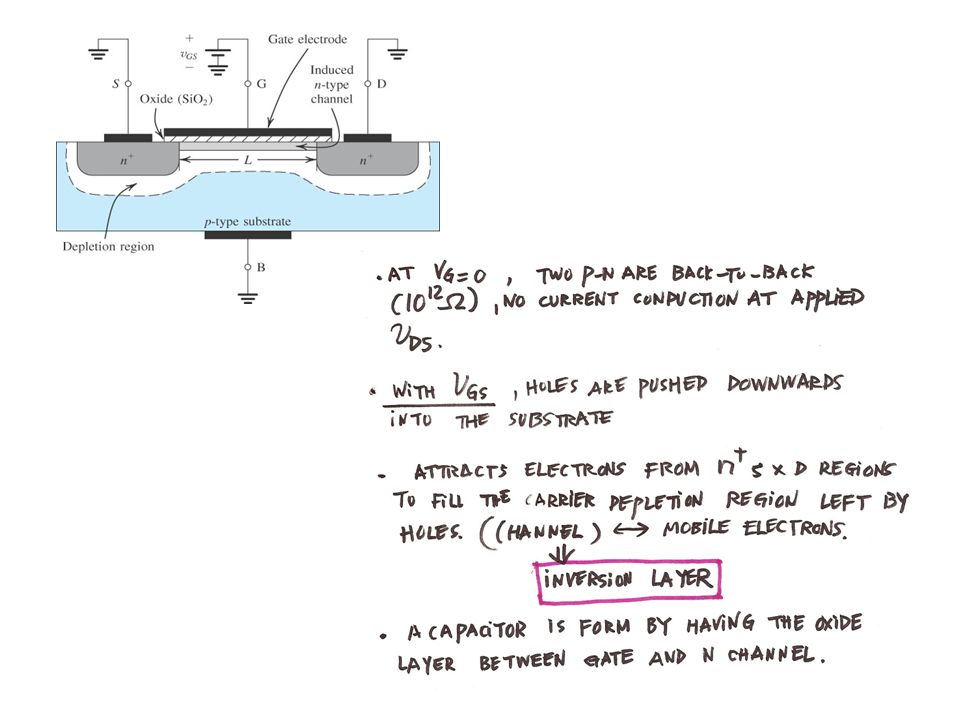 +
vGS
−
Gate electrode
S
G
Induced
n-type
channel
D
Oxide (SiO2)
n+
L
n+
p-type substrate
Depletion region
B
• AT VG=0 , TWO P-N ARE BACK-TO-BACK
(10^12 Ω) , NO CURRENT CONDUCTION AT APPLIED
VDS.
• WITH VGS , HOLES ARE PUSHED DOWNWARDS
INTO THE SUBSTRATE
• ATTRACTS ELECTRONS FROM n+ S & D REGIONS
TO FILL THE CARRIER DEPLETION REGION LEFT BY
HOLES. (CHANNEL) ↔ MOBILE ELECTRONS.
⇓
INVERSION LAYER
• A CAPACITOR IS FORM BY HAVING THE OXIDE
LAYER BETWEEN GATE AND N CHANNEL.